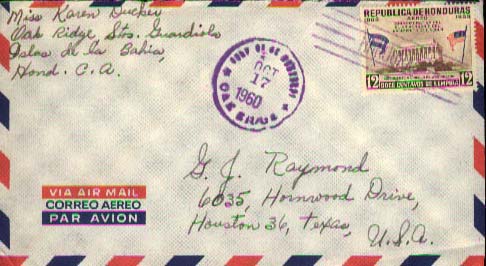 Miss Karen Duckey
Oak Ridge, Sto. Guardiola
Islas de la Bahia,
Hond. C. A.
REPUBLICA DE HONDURAS
AEREO
12
DOCE CENTAVOS DE LEMPIRA
12
OCT
17
1960
OAK RIDGE
G. J. Raymond
6035, Hornwood Drive,
Houston 36, Texas,
U.S.A.
VIA AIR MAIL
CORREO AEREO
PAR AVION